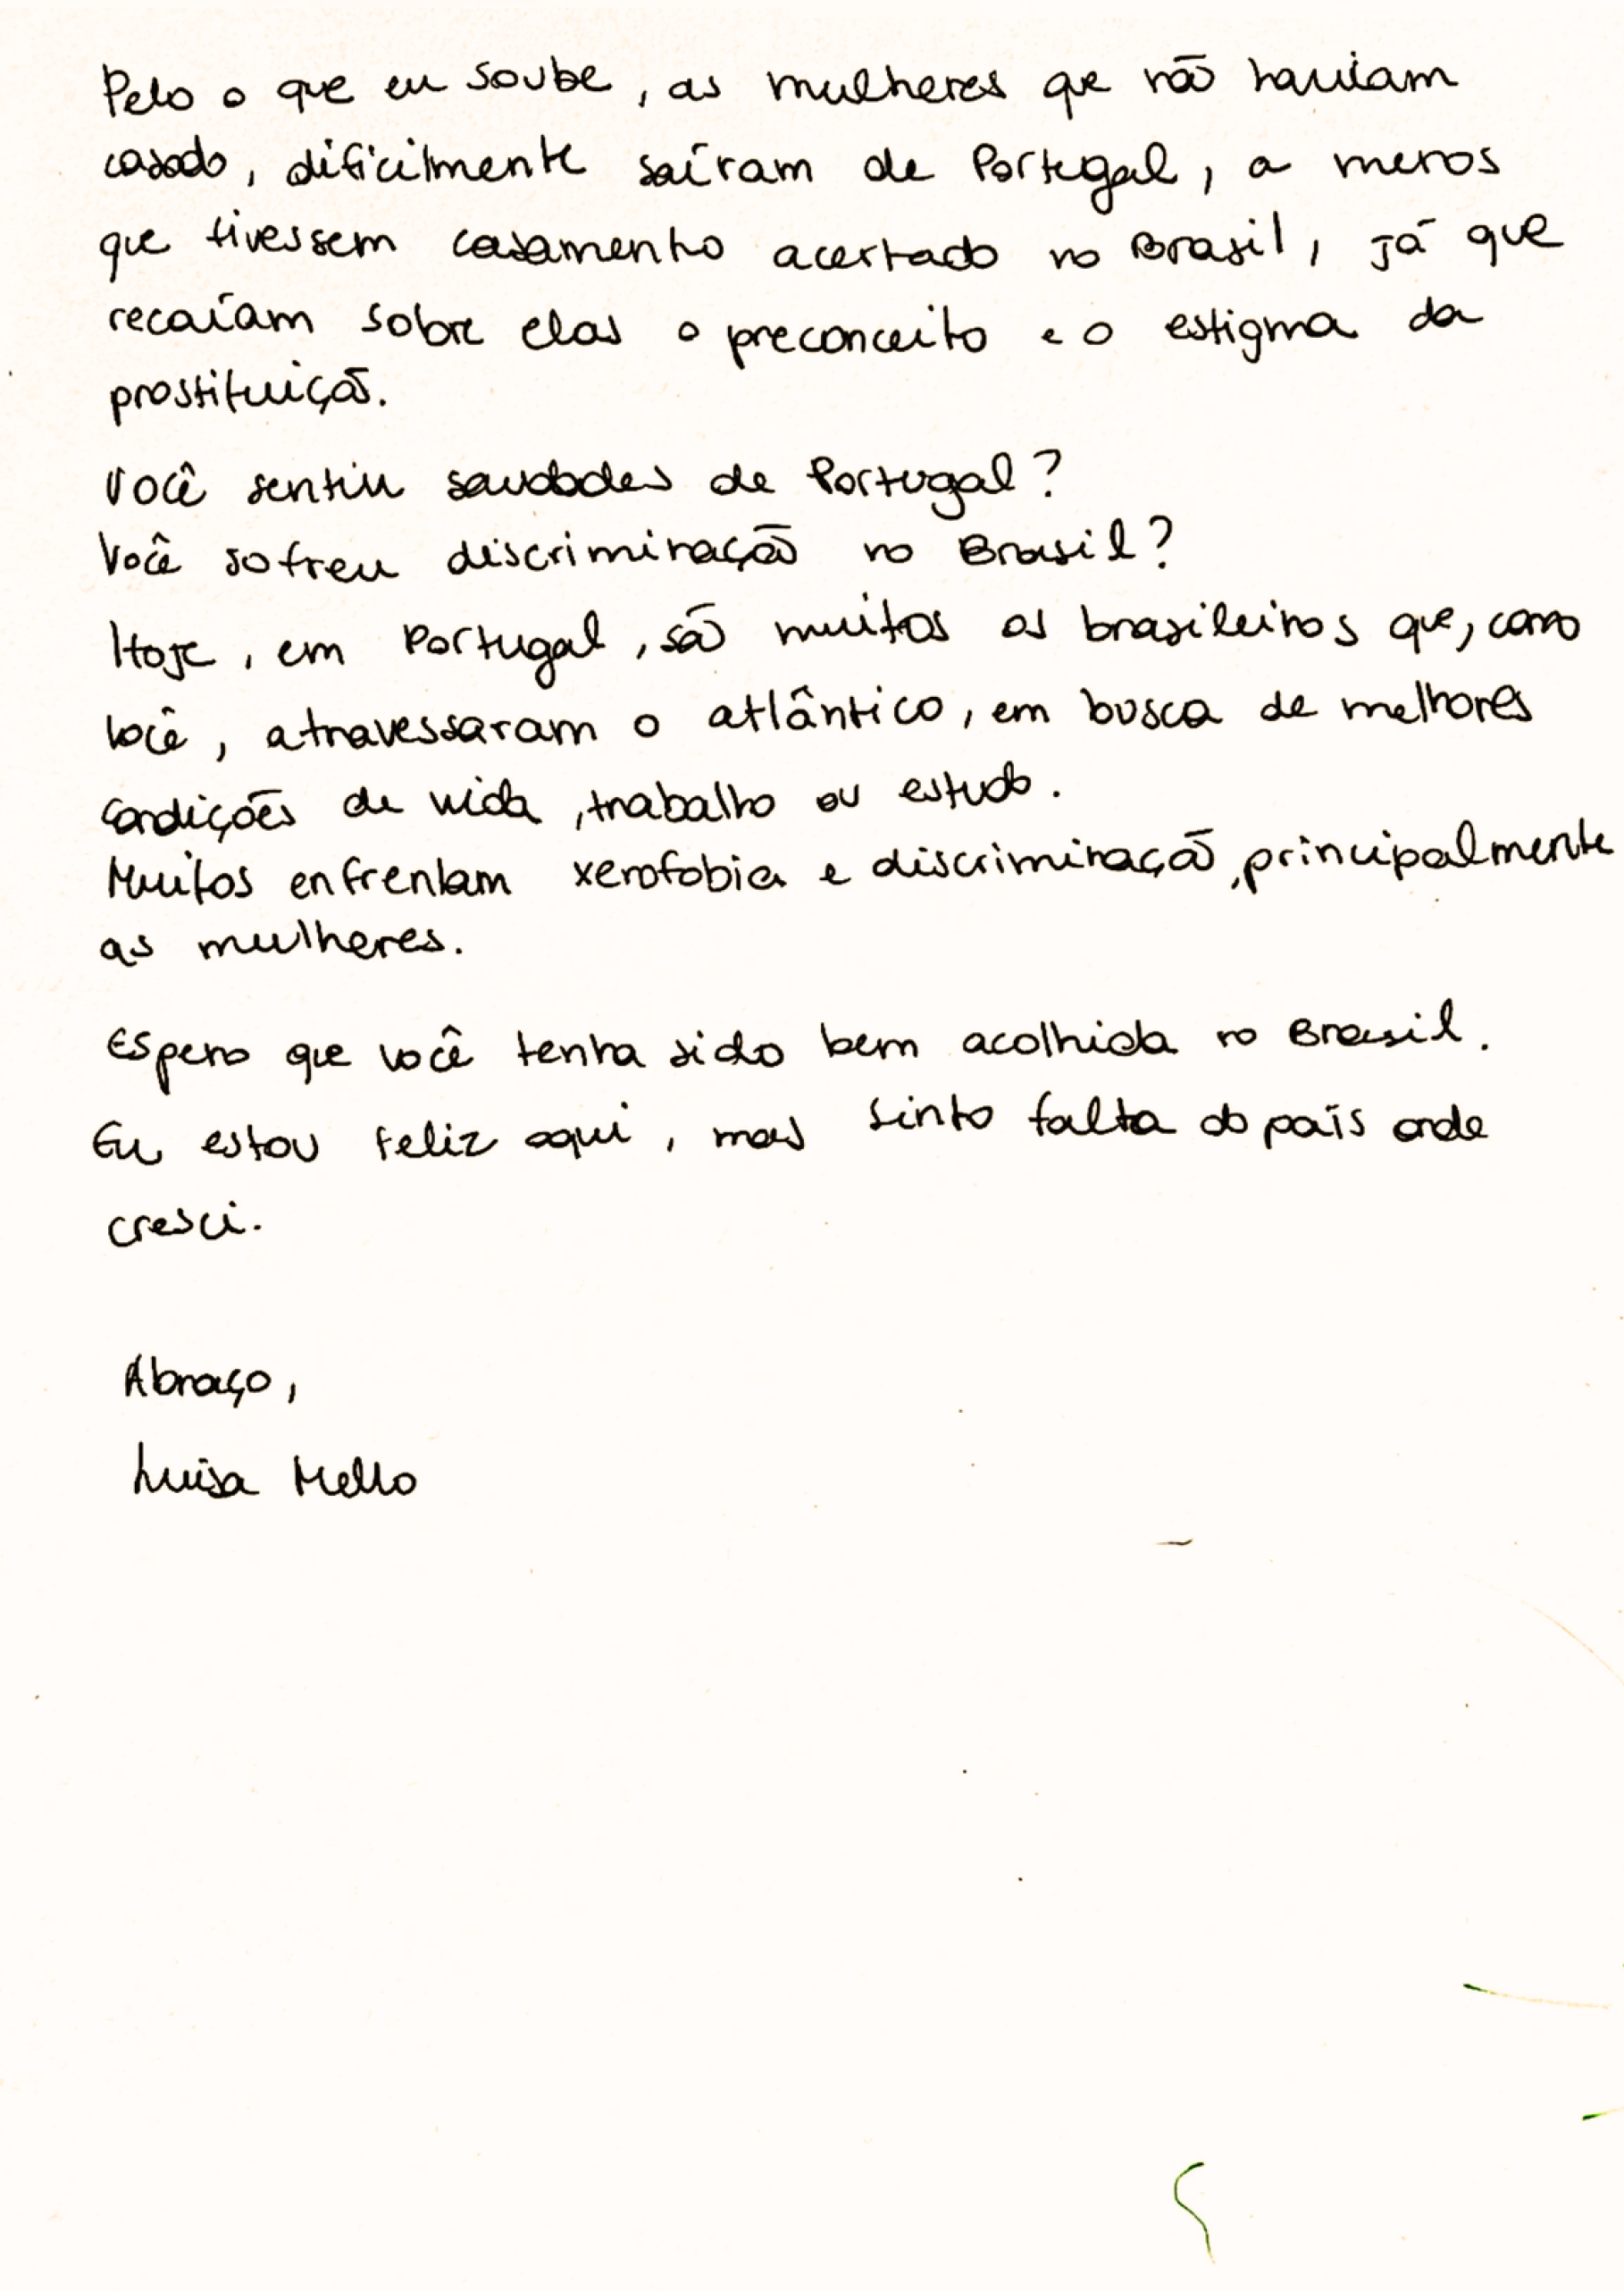 Pelo o que eu soube, as mulheres que não haviam
casado, dificilmente saíram de Portugal, a menos
que tivessem casamento acertado no Brasil, já que
recaíam sobre elas o preconceito e o estigma da
prostituição.
Você sentiu saudades de Portugal?
Você sofreu discriminação no Brasil?
Hoje, em Portugal, são muitos os brasileiros que, como
você, atravessaram o atlântico, em busca de melhores
condições de vida, trabalho ou estudo.
Muitos enfrentam xenofobia e discriminação, principalmente
as mulheres.
Espero que você tenha sido bem acolhida no Brasil.
Eu estou feliz aqui, mas sinto falta do país onde
cresci.
Abraço,
Luisa Mello